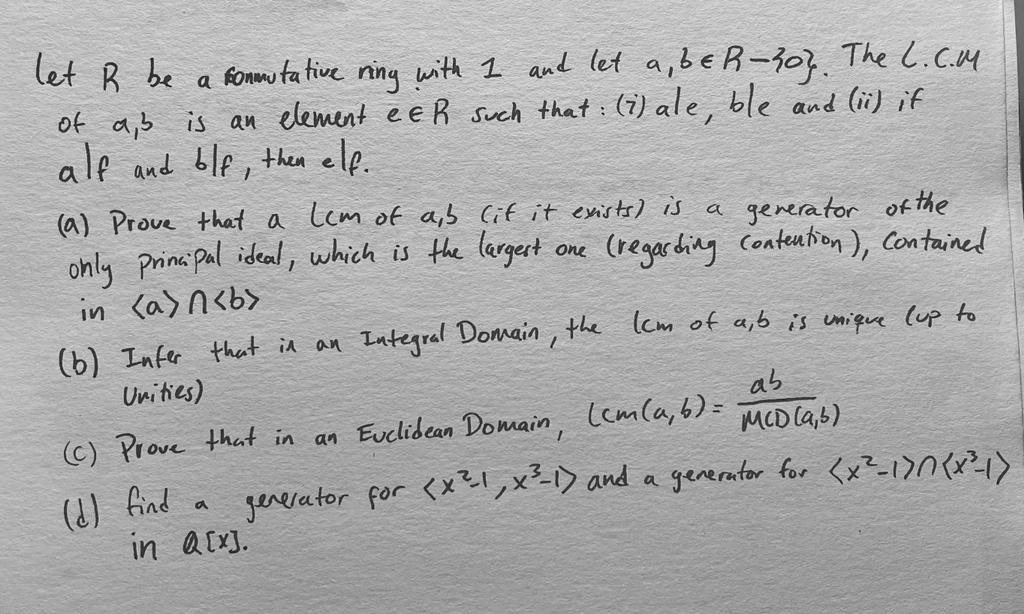 Let R be a commutative ring with 1 and let a,b ∈ R-{0}. The L.C.M
of a,b is an element e ∈ R such that: (i) a|e, b|e and (ii) if
a|f and b|f, then e|f.
(a) Prove that a lcm of a,b (if it exists) is a generator of the
only principal ideal, which is the largest one (regarding contention), contained
in <a>∩<b>
(b) Infer that in an Integral Domain, the lcm of a,b is unique (up to
Unities)
(c) Prove that in an Euclidean Domain, lcm(a,b) = ab/MCD(a,b)
(d) find a generator for <x²-1, x³-1> and a generator for <x²-1>∩<x³-1>
in Q[x].